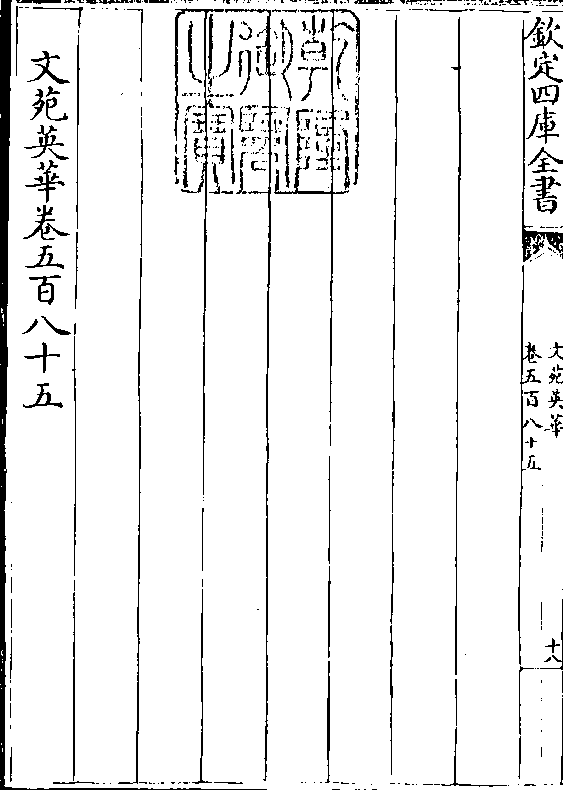 欽定四庫全書
文苑英華
卷五百八十五
十八
乾隆御覽之寶
文苑英華卷五百八十五